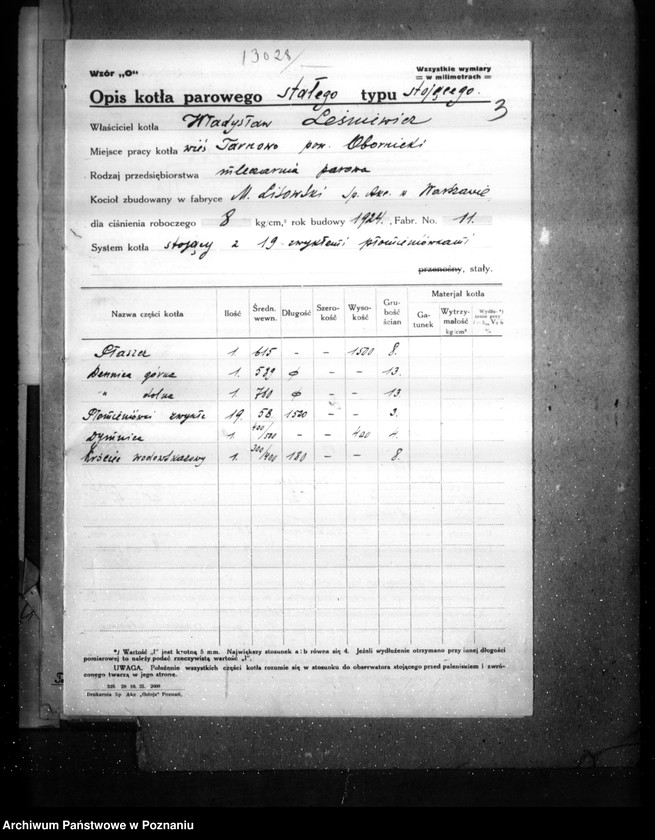 13028/
Wzór „O"
Wszystkie wymiary
= w milimetrach =
Opis kotła parowego stałego typu stojącego.
3
Właściciel kotła Władysław Leśniewicz
Miejsce pracy kotła wieś Tarnowo pow. Obornicki
Rodzaj przedsiębiorstwa mleczarnia parowa
Kocioł zbudowany w fabryce M. Lisowski Sp. Akc. w Warszawie
dla ciśnienia roboczego 8 kg/cm,² rok budowy 1924. , Fabr. No. 11.
System kotła stojący z 19 zwykłemi płomieniówkami
przenośny, stały.
Nazwa części kotła Ilość Średn. wewn. Długość Szerokość Wysokość Grubość ścian Materjał kotła
Gatunek Wytrzymałość kg/cm²
Płaszcz 1 615 - - 1500 8.
Dennica górna 1. 529 ø - - 13.
" dolna 1. 710 ø - - 13
Płomieniówki zwykłe 19. 58. 1520 - - 3.
Dymnica 1. - - 400 4.
Króciec wodowskazowy 1. 300/400 180 - - 8.
*) Wartość „l" jest krotną 5 mm. Największy stosunek a : b równa się 4. Jeśli wydłużenie otrzymano przy innej długości
pomiarowej to należy podać rzeczywistą wartość „l".
UWAGA. Położenie wszystkich części kotła rozumie się w stosunku do obserwatora stojącego przed paleniskiem i zwró-
conego twarzą w jego stronę.
Drukarnia Sp Akc. "Ostoja" Poznań.
Archiwum Państwowe w Poznaniu